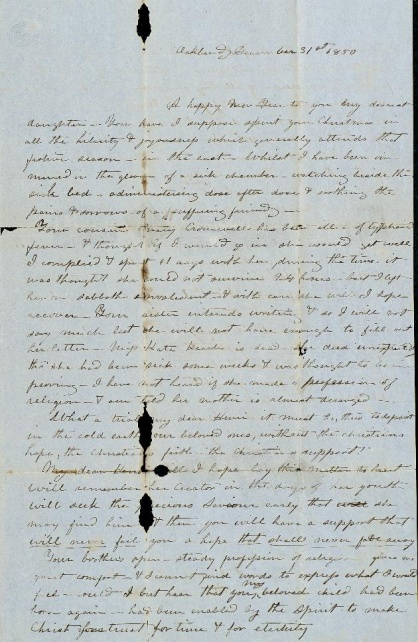 Oakland, December 31st 1850
A happy New Year to you my dearest
daughter — You have I suppose spent your Christmas in
all the felicity & joyousness which generally attends that
festive season — in the east — Whilst I have been im
mured in the gloom of a sick chamber — watching beside the
sick bed — administering dose after dose & soothing the
pains & sorrows of a suffering friend —
Your cousin Cromwell has been ill of typhoid
fever — & thought if I would go in she would get well
I complied & spent 11 days with her, during the time it
was thought she could not survive 24 hours — but I left
her on sabbath convalescent & with care she will I hope
recover — Your sister intends writing & so I will not
say much lest she will not have enough to fill out
her letter — Miss Kate is dead her death unexpected
tho' she had been sick some weeks & was thought to be im
proving — I have not heard if she made a profession of
religion — & am told her mother is almost deranged —
What a trial my dear it must be, thus to deposit
in the cold earth our beloved ones, without the christians
hope, the christians faith the christians support!
My dear I hope lay this matter to heart
will remember her Creator in the days of her youth
will seek the precious Saviour early that she
may find him & then you will have a support that
will never fail you a hope that shall never pass away
Your brothers open steady profession of religion gives us
great comfort & I cannot find words to express what I would
feel — could I but hear that you my beloved child had been
born again — had been enabled by the Spirit to make
Christ your trust for time & for eternity